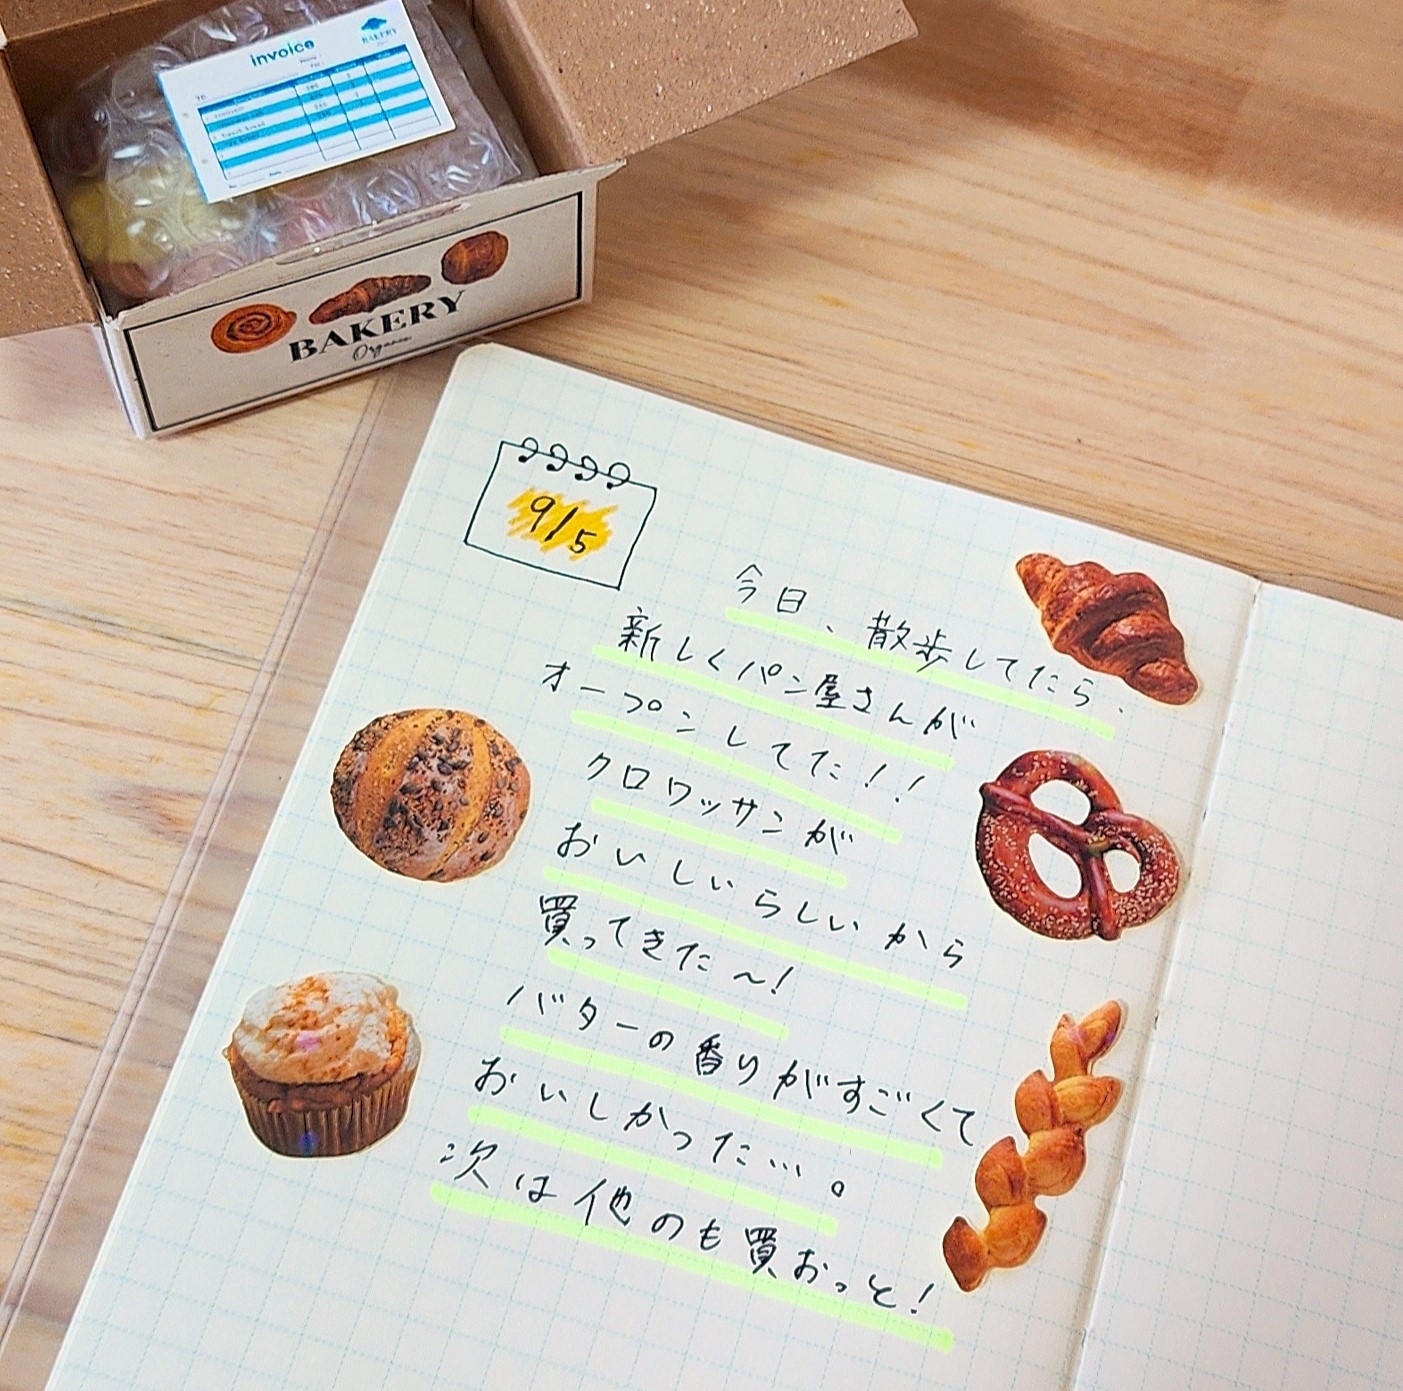 invoice
BAKERY
BAKERY
Organic
9/5
今日、散歩してたら、
新しくパン屋さんが
オープンしてた!!
クロワッサンが
おいしいらしいから
買ってきた〜!
バターの香りがすごくて
おいしかった…。
次は他のも買おっと!